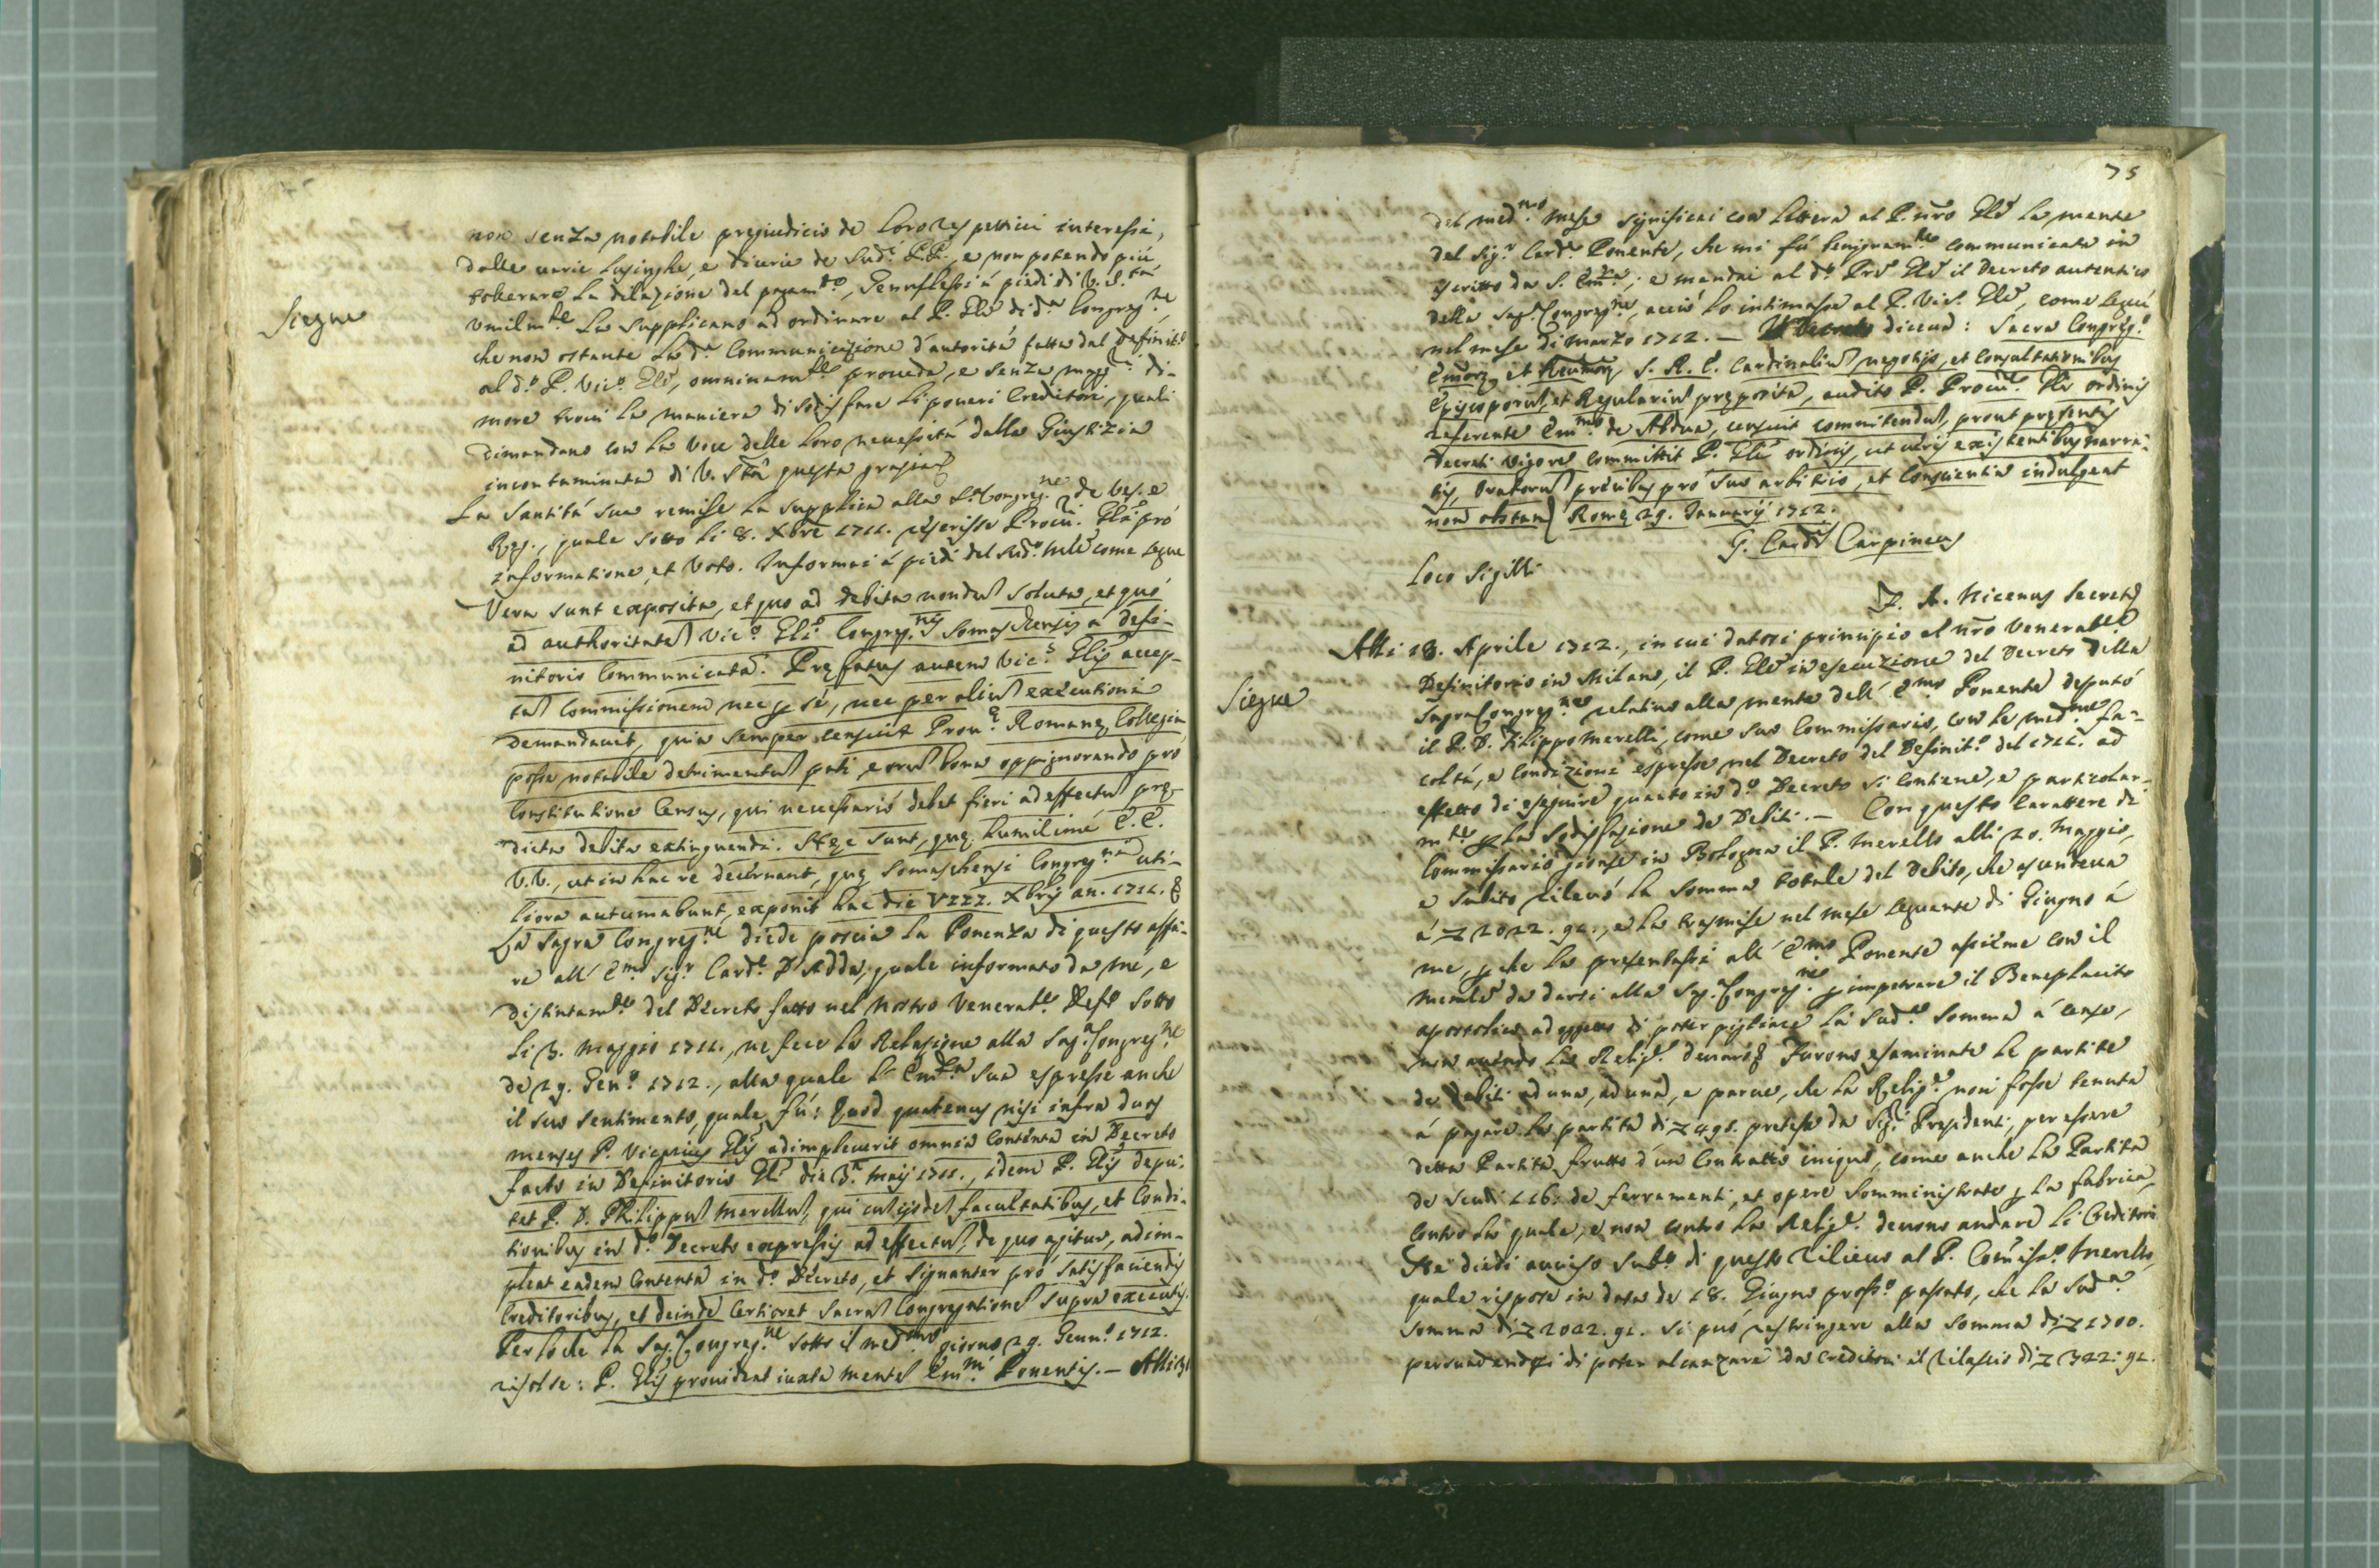 non senza notabile pregiudicio de loro respettivi interessi,
dalle varie lusinghe, e dicerie de Sud.i P.P., e non potendo più
tolerare la dilazione del pagam.to, Genuflessi à piedi di V. S.tà
Siegue
umilm.te La supplicano ad ordinare al P. Gle di d.a Congreg.ne,
che non ostante la d.a Communicazione d'autorità fatta dal Definit.o
al d.o P. Vic.o Gle, omninam.te proveda, e senza magg.r di-
more trovi la maniera di sodisfare li poveri Creditori, quali
dimandano con la voce delle loro necessità dalla Giustizia
incontaminata di V. Stà questa grazia
La Santità sua remise la supplica alla S. Congreg.ne de Ves. e
Reg., quale sotto li 8. Xbre 1711. rescrisse Procu. Glĩ prò
informatione, et Voto. Informai à piedi del Sud.o Mle come segue
Vera sunt exposita, et quo ad debita nondũ soluta, et quò
ad authoritatẽ Vic.o Gli Congreg.nis Somaschensis a defi-
nitorio Communicatã. Præfatus autem Vic.s Glis accep-
tat Commissionem nec p sé, nec per aliũ executioni
demandavit, quia semper censuit Prov.æ Romanæ Collegia
posse notabile detrimentũ pati, eorũ bona oppignorando pro
Constitutione Census, qui necessariò debet fieri ad effectũ præ-
dicta debita extinguendi. Hæc sunt, quæ humilimé E.E.
V.V., ut in hac re decernant, quæ Somaschensi Congreg.ni uti-
liora autumabunt, exponit hac die VIII. Xbris an. 1711.
La Sagra Congreg.ne diede poscia la Ponenza di questo affa-
re all'E.mo Sig.r Card.e D'Adda, quale informato da me, e
distintam.te del Decreto fatto nel nostro Venerab.e Def.o sotto
li 3. Maggio 1711., ne fece la Relazione alla Sag. Congreg.ne
de 29. Gen.o 1712., alla quale l'Em.za Sua espresse anche
il suo sentimento, quale fù: Quod quatenus nisi infra duos
menses P. Vicarius Glis adimpleverit omnia contenta in Decreto
facto in Definitorio Gli die 3.a Maij 1711., idem P. Glis depu-
tet P. D. Philippũ Merellũ, qui cũ ijsdẽ facultatibus, et Condi-
tionibus in d.o Decreto expressis ad effectũ, de quo agitur, adim-
pleat eadem Contenta in d.o Decreto, et signanter prò satisfaciendis
Creditoribus, et deinde Certioret Sacrã Congregationẽ supra executis.
Perloche la Sag. Congreg.ne sotto il med.mo giorno 29. Genn.o 1712.
risolse: P. Glis provideat iuxta mentẽ Em.mi Ponentis. — Alli 31
75
del med.mo mese significai con lettera al P. nro Gle la mente
del Sig.r Card.e Ponente, che mi fù benignam.te communicata in
iscritto da S. Em.za; e mandai al d.o Pre Gle il Decreto autentico
della Sag. Congreg.ne, acciò lo intimasse al P. Vic. Gle, come seguì
nel mese di Marzo 1712. — Il Decreto diceva: Sacra Congreg.o
Emor, et Rmor S. R. E. Cardinaliũ negotijs, et Consultationibus
Episcoporũ, et Regulariũ præposita, audito P. Procu.e Gli ordinis
referente Em.mo de Abdua, censuit committendũ, prout præsentis
Decreti vigore committit P. Gli ordinis, ut veris existentibus narra-
tis, Oratorũ precibus pro suo arbitrio, et Conscientia indulgeat
non obstan Romæ 29. Januarij 1712.
G. Card. Carpineus
Loco Sigilli
A. Nicenus Secret.
Alli 18. Aprile 1712., in cui datosi principio al nro Venerab.le
Siegue
Definitorio in Milano, il P. Gle in esecuzione del Decreto della
Sagra Congreg.ne relativo alla mente dell'E.mo Ponente deputò
il P. D. Filippo Merelli, come suo Commissario, con le med.me fa-
coltà, e Condizioni espresse nel Decreto del Definit.o del 1711. ad
effetto di eseguire quanto in d.o Decreto si contiene, e particolar-
m.te p la sodisfazione de Debiti. — Con questo Carattere di
Commissario giunse in Bologna il P. Merello alli 20. Maggio,
e subito rilevò la somma totale del Debito, che ascendeva
à 2022. 91., e la trasmise nel mese seguente di Giugno à
me, p che la presentassi all'E.mo Ponente assieme con il
Memle da darsi alla Sag. Congreg.ne p impetrare il Beneplacito
apostolico ad effetto di poter pigliare la Sud.a Somma à Censo,
non avendo la Relig.e denaro. Furono esaminate le partite
de debiti ad una, ad una, e parve, che la Relig.e non fosse tenuta
à pagare la partita di 495. pretesa da Sig.i Presidenti, per essere
detta Partita frutto d'un Contratto iniquo, come anche la Partita
de scudi 116: de ferramenti, et opere somministrate p la fabrica,
contro la quale, e non contro la Relig.e devono andare li Creditori
Ne diedi avviso sub.o di questo rilievo al P. Comiss.o Merello,
quale rispose in data de 18. Giugno pross.o passato, che la Sud.a
somma di 2022. 91. si può restringere alla somma di 1700.
persuadendosi di poter alcanzare da Creditori il rilascio di 322: 91.